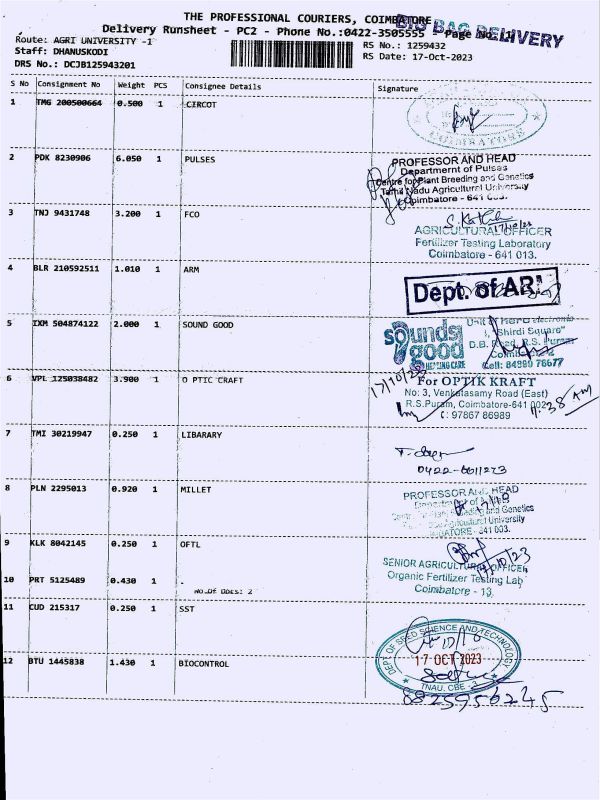 THE PROFESSIONAL COURIERS, COIMBATORE
BIG BAG DELIVERY
Delivery Runsheet - PC2 - Phone No.:0422-3505555 - Page No. 1/1
Route: AGRI UNIVERSITY -1
RS No.: 1259432
Staff: DHANUSKODI
RS Date: 17-Oct-2023
DRS No.: DCJB125943201
S No Consignment No Weight PCS Consignee Details Signature
1 TMG 200500664 0.500 1 CIRCOT
COIMBATORE
2 PDK 8230906 6.050 1 PULSES
PROFESSOR AND HEAD
Department of Pulses
Centre for Plant Breeding and Genetics
Tamil Nadu Agricultural University
Coimbatore - 641 003.
3 TNJ 9431748 3.200 1 FCO
17/10/23
AGRICULTURAL OFFICER
Fertilizer Testing Laboratory
Coimbatore - 641 013.
4 BLR 210592511 1.010 1 ARM
Dept. of ARM
5 IXM 504874122 2.000 1 SOUND GOOD
sounds good
HEARING CARE
Unit of Hero electronic
1, "Shirdi Square"
D.B. Road, R.S. Puram
Coimbatore-2
Cell: 84890 76677
6 VPL 125038482 3.900 1 O PTIC CRAFT
17/10/23
For OPTIK KRAFT
No: 3, Venkatasamy Road (East)
R.S.Puram, Coimbatore-641 002
C: 97867 86989
11:38 AM
7 TMI 30219947 0.250 1 LIBARARY
0422-6611223
8 PLN 2295013 0.920 1 MILLET
PROFESSOR AND HEAD
Department of
Breeding and Genetics
Agricultural University
COIMBATORE - 641 003.
9 KLK 8042145 0.250 1 OFTL
17/10/23
SENIOR AGRICULTURAL OFFICER
Organic Fertilizer Testing Lab
Coimbatore - 13.
10 PRT 5125489 0.430 1 .
No.Of Docs: 2
11 CUD 215317 0.250 1 SST
DEPT OF SEED SCIENCE AND TECHNOLOGY
17 OCT 2023
TNAU, CBE - 3
12 BTU 1445838 1.430 1 BIOCONTROL
8825956245